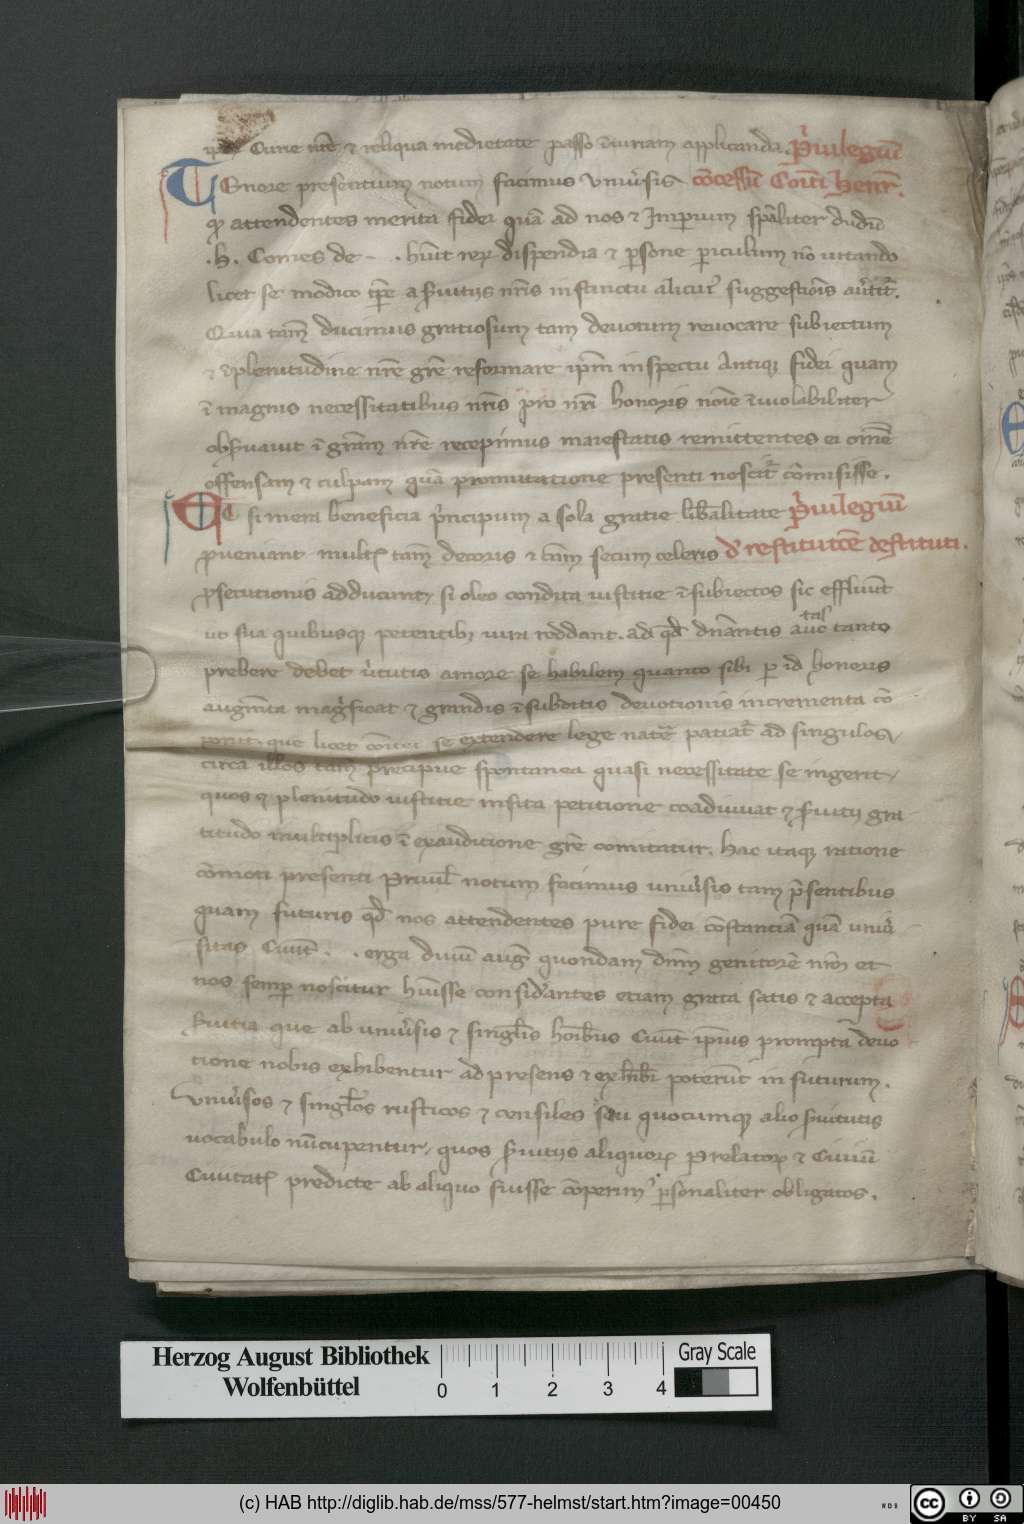 Curie nr̄e ⁊ reliqua medietate passo iniuriam applicanda. Pⁱuilegiū
TEnore presentium notum facimus vniuˀsis cōcessū Comⁱ Henr̄.
qͦ attendentes merita fidei quā ad nos ⁊ Imperium spāliter dudū
.h. Comes de – . hūit rerꝝ dispendia ⁊ ꝑsone ꝑiculum nō uitando
licet se modico tꝑe a ẜuitijs nr̄is instinctu alicuiꝰ suggestiōis
Quia tam̄ ducimus gratiosum tam deuotum reuocare subiectum
⁊ plenitudine nr̄e gr̄e reformare ip̄m inspectu antique fidei quam
ī magnis necessitatibus nr̄is pro nr̄i honoris noīe īuiolabiliter
obẜuauit ī gr̄am nr̄e recepimus maiestatis remittentes ei om̄e
offensam ⁊ culpam quā promutatione presenti noscit̄ cōmisisse.
ET si mera beneficia pⁱncipum a sola gratie lib̄alitate Pⁱuilegiū
ꝓueniant multꝭ tam̄ decoris ⁊ secum celeris dˀ restitutōe destituti.
ꝓsecutionis adducunt, si oleo condita iustitie ī subiectos sic effluūt
ut sua quibusque petentibꝫ iura reddant. ad qd̄ dn̄antis auc tanto
tas
prebere debet uˀtutis amore se habilem quanto sibi ꝑ id honoris
augm̄ta magⁱficat ⁊ grandis ī subditis deuotionis incrementa cō
ponit. que licet se extendere lege nat̄e patiat̄ ad singulos,
circa illos tam̄ precipue spontanea quasi necessitate se ingerit,
quos ⁊ plenitudo iustitie insita petitione coadiuuat ⁊ ẜuitij gra
titudo multiplicis ī exauditione gr̄e comitatur. Hac itaque ratione
cōmoti presenti Priuil̄ notum facimus uniuˀsis tam pˀsentibus
quam futuris qd̄ nos attendentes pure fidei cōstantiā quā uniuˀ
sitas Ciuit̄. . erga diuū aug̅ quondam dn̄m genitorē nr̄m et
nos semꝑ noscitur hūisse considˀantes etiam grata satis ⁊ accepta
ẜuitia que ab uniuˀsis ⁊ singl̄is hoībus Ciuit̄ ip̄ius prompta deuo
tione nobis exhibentur ad presens ⁊ exhiberi poterūt in futurum.
Vniuˀsos ⁊ singl̄os rusticos ⁊ censiles seu quocumque alio ẜuitutis
uocabulo nūcupentur, quos ẜuitijs aliquorꝝ Prelatorꝝ ⁊ Ciuiū
Ciuitatꝭ predicte ab aliquo fuisse cōperimꝰ ꝑsonaliter obligatos.
Herzog August Bibliothek
Wolfenbüttel
0 1 2 3 4
Gray Scale
(c) HAB http://diglib.hab.de/mss/577-helmst/start.htm?image=00450
WDB
cc BY SA